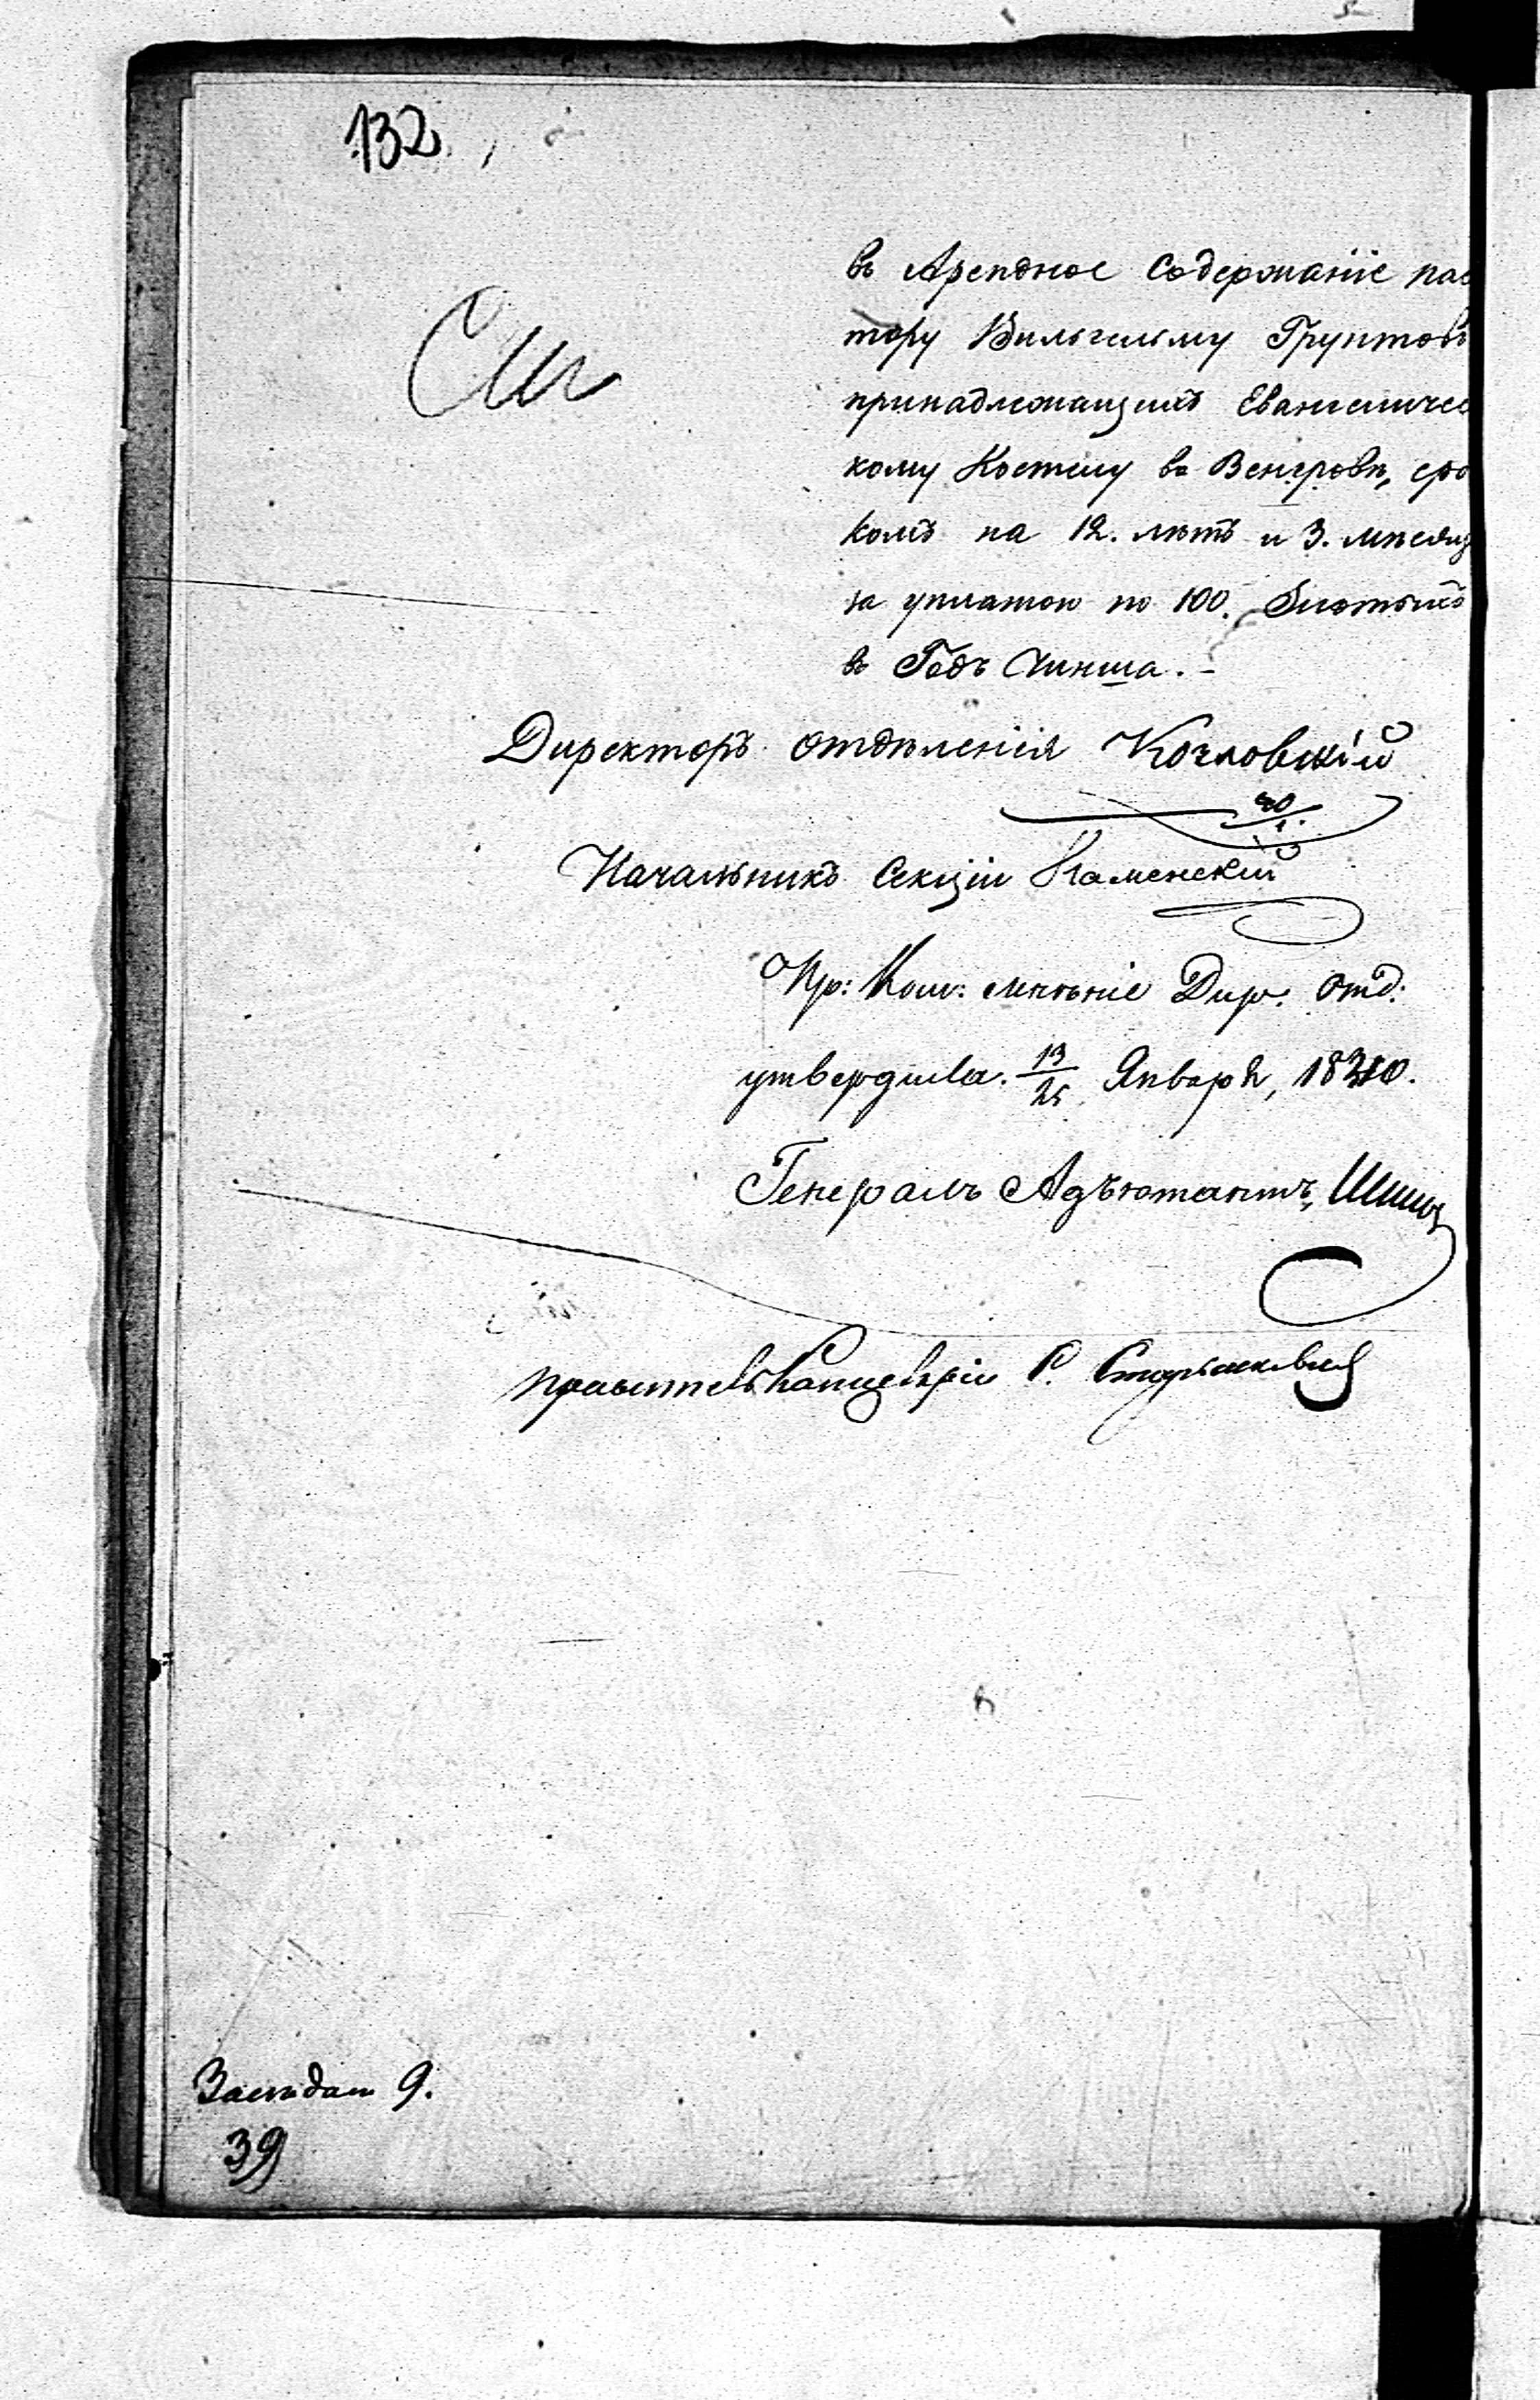 132.
въ Арендное Содержаніе пас
тору Вильгельму Грунтовъ
принадлежащихъ Евангеличес
кому Костелу въ Венгровѣ, сро
комъ на 12. лѣтъ и 3. мѣсяц
за уплатою по 100. Злотыхъ
въ Годъ Чинша. -
Директоръ отдѣленія Козловскій
20/1.
Начальникъ Секціи Каменскій
Пр: Ком: мнѣніе Дир. Отд:
утвердила. 13/25 Января, 1840.
Генералъ Адъютантъ, Шипов
Правитель Канцеляріи
Засѣдан 9.
39